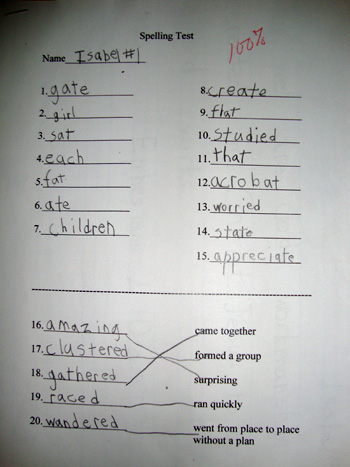 Spelling Test
100%
Name Isabel #1
1. gate
2. girl
3. sat
4. each
5. fat
6. ate
7. children
8. create
9. flat
10. studied
11. that
12. acrobat
13. worried
14. state
15. appreciate
16. amazing
17. clustered
18. gathered
19. raced
20. wandered
came together
formed a group
surprising
ran quickly
went from place to place
without a plan